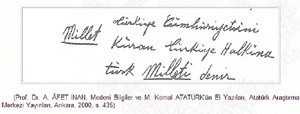 Türkiye Cümhuriyetini
Millet kuran Türkiye Halkına
türk Milleti denir
(Prof. Dr. A. ÂFET İNAN, Medeni Bilgiler ve M. Kemal ATATÜRK'ün El Yazıları, Atatürk Araştırma
Merkezi Yayınları, Ankara, 2000, s. 435)